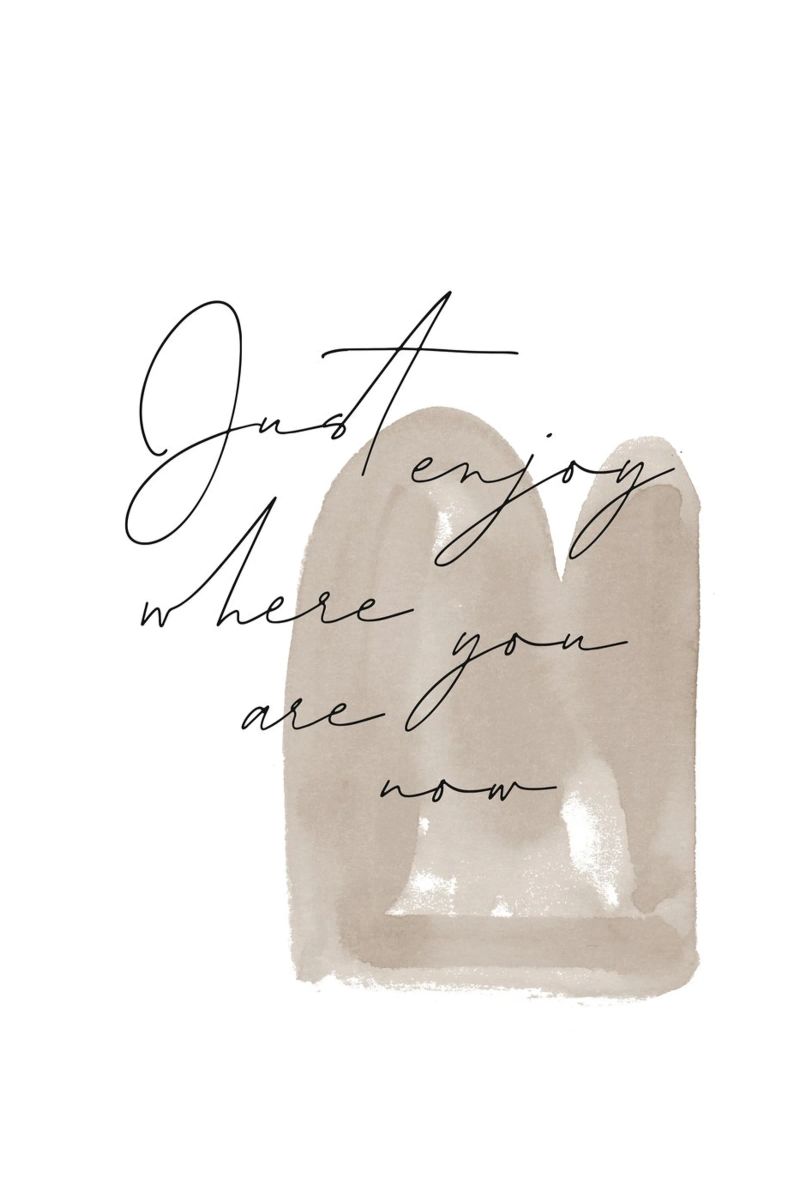 Just enjoy
where you
are
now